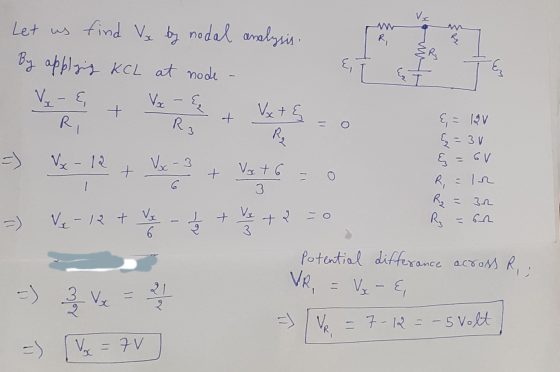 Let us find Vx by nodal analysis.
By applying KCL at node -
(Vx - ε1)/R1 + (Vx - ε2)/R3 + (Vx + ε3)/R2 = 0
=> (Vx - 12)/1 + (Vx - 3)/6 + (Vx + 6)/3 = 0
=> Vx - 12 + Vx/6 - 1/2 + Vx/3 + 2 = 0
=> 3/2 Vx = 21/2
=> Vx = 7V
Vx
R1
R2
R3
ε1
ε2
ε3
ε1 = 12V
ε2 = 3V
ε3 = 6V
R1 = 1Ω
R2 = 3Ω
R3 = 6Ω
Potential differance across R1;
VR1 = Vx - ε1
=> VR1 = 7-12 = -5 Volt